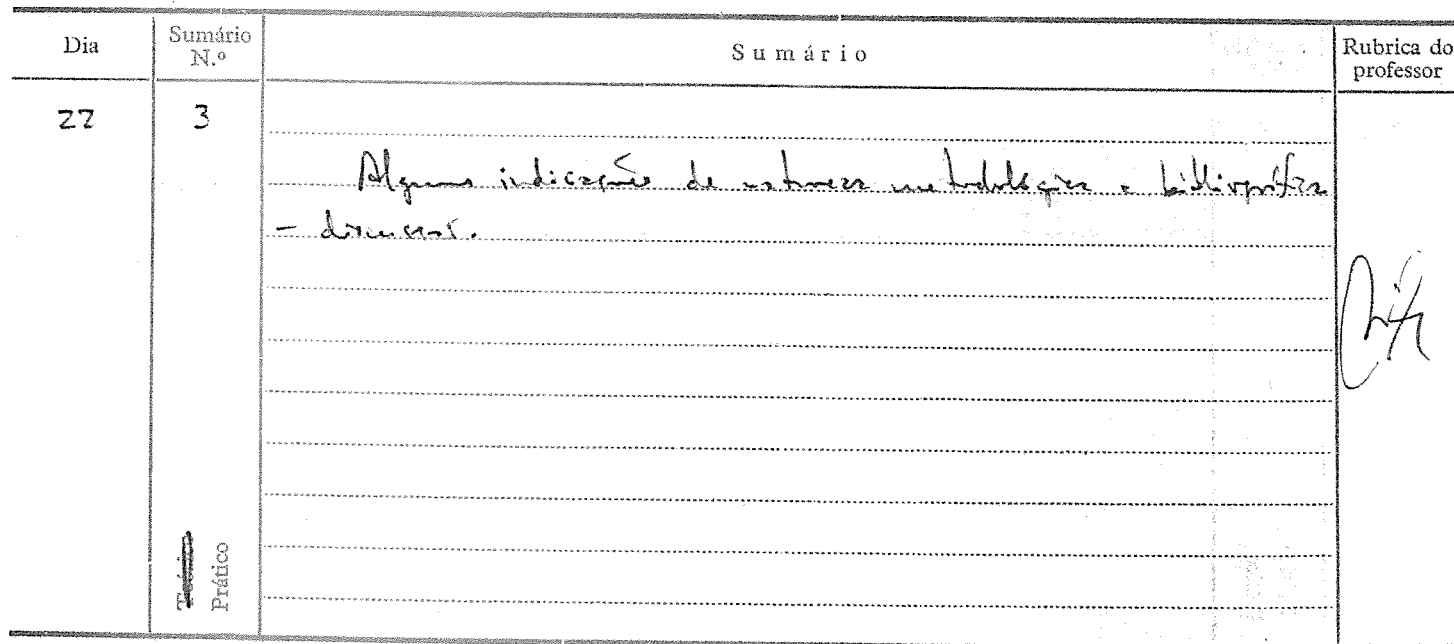 Dia
Sumário N.º
Sumário
Rubrica do professor
22
3
Algumas indicações de natureza metodológica e bibliográfica
- discussão.
Teórico
Prático